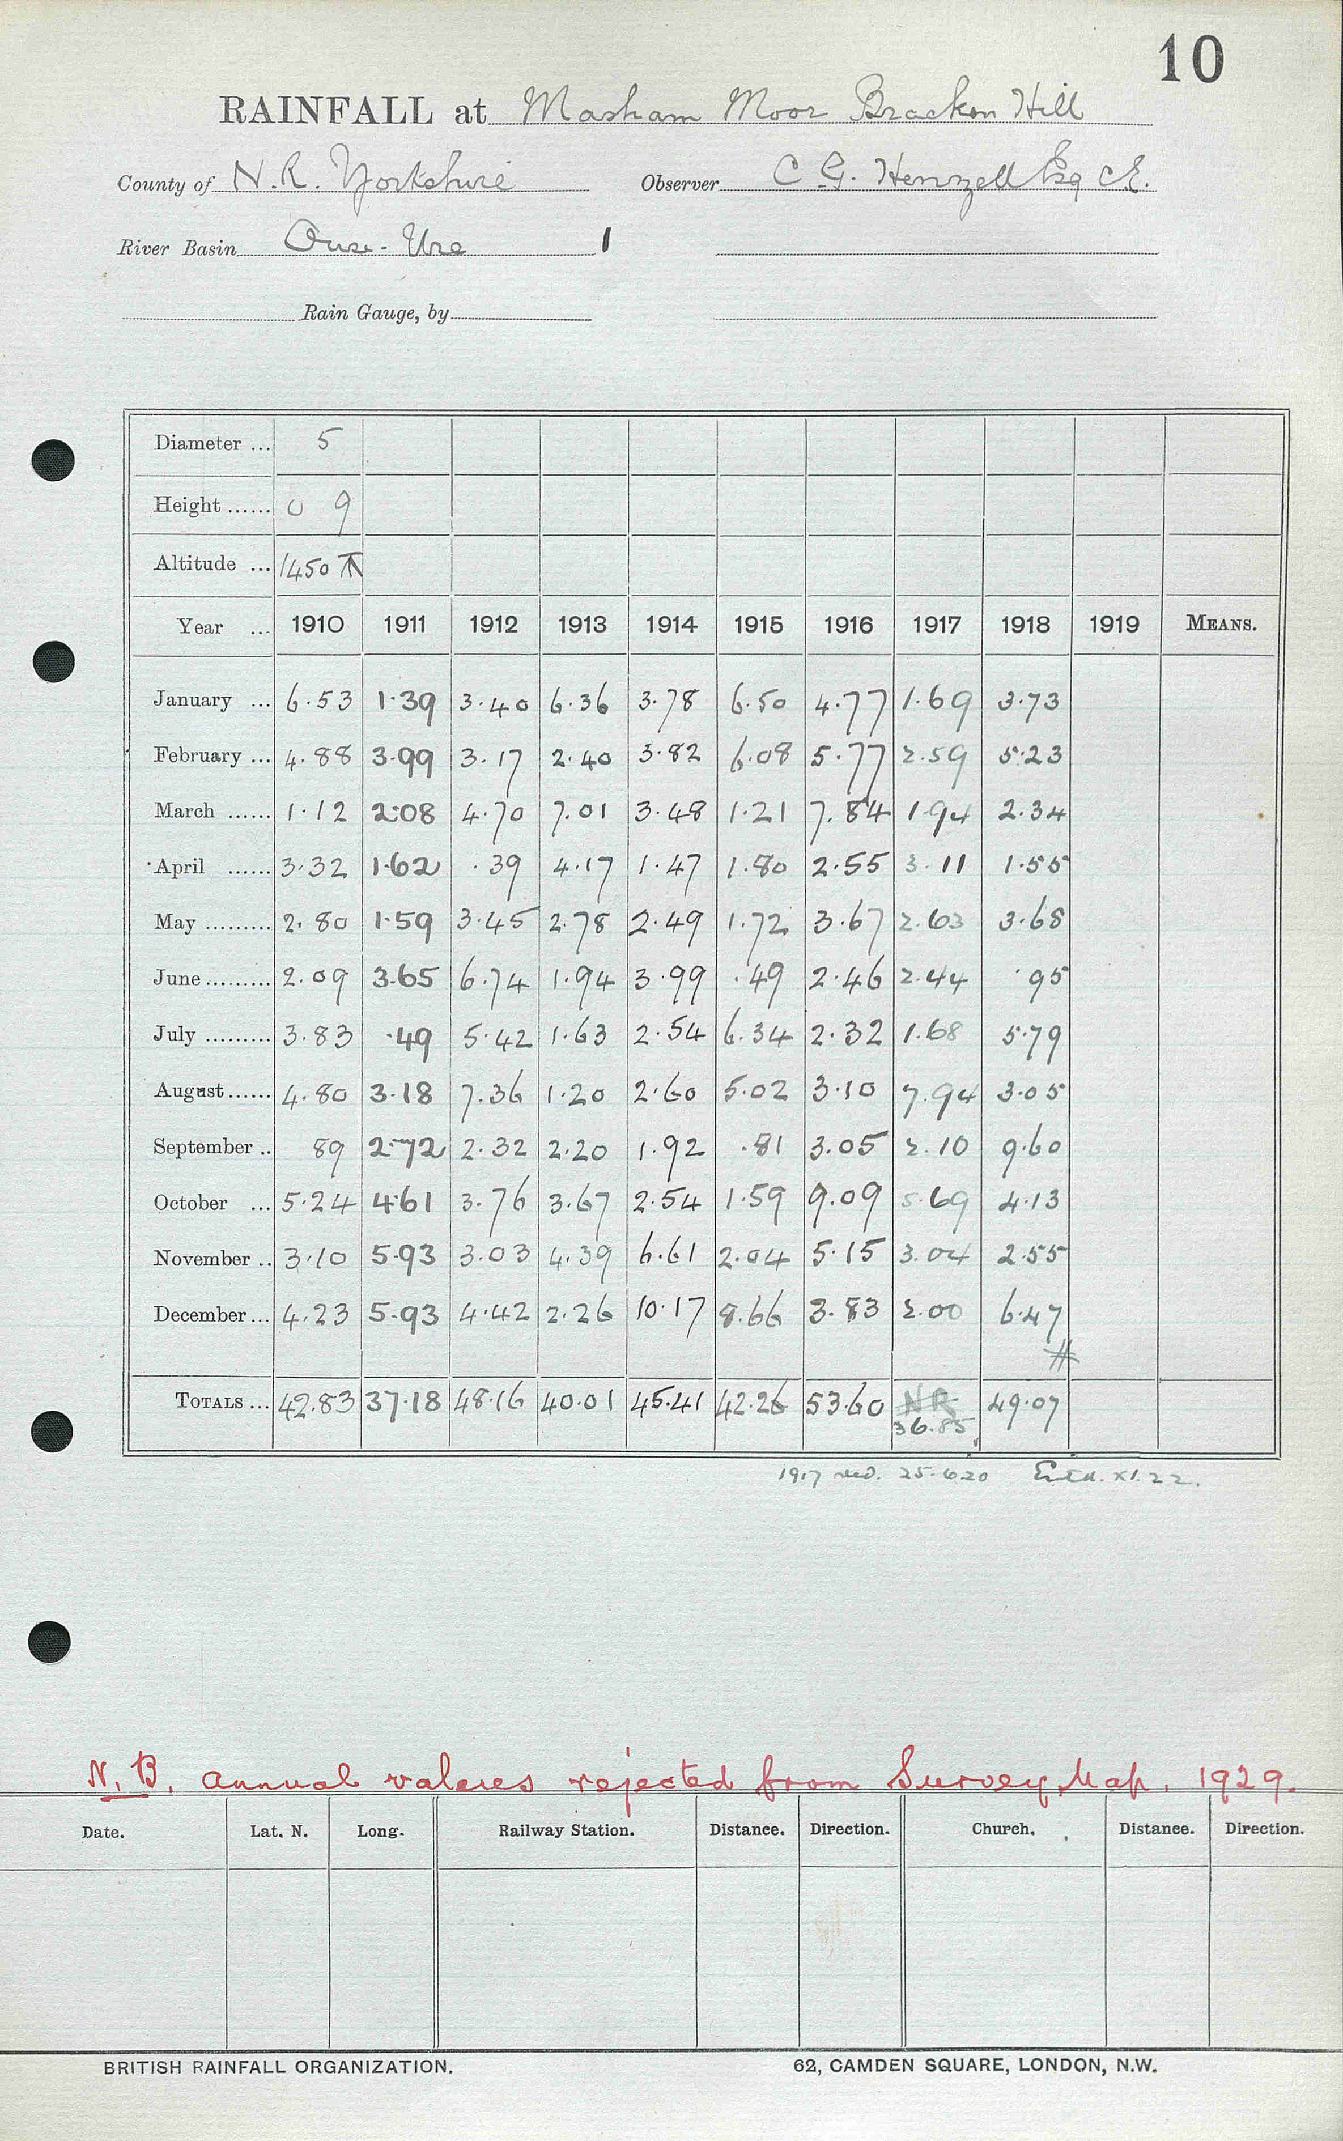 10
RAINFALL at Masham Moor Bracken Hill
County of N.R. Yorkshire Observer C G. Henzell Esq C.E.
River Basin Ouse-Ure 1
Rain Gauge, by
Diameter ... 5
Height ...... 0 9
Altitude ... 1450 T
Year ... 1910 1911 1912 1913 1914 1915 1916 1917 1918 1919 MEANS.
January ... 6.53 1.39 3.40 6.36 3.78 6.50 4.77 1.69 3.73
February ... 4.88 3.99 3.17 2.40 3.82 6.08 5.77 2.59 5.23
March ...... 1.12 2.08 4.70 7.01 3.48 1.21 7.84 1.94 2.34
April ...... 3.32 1.62 .39 4.17 1.47 1.80 2.55 3.11 1.55
May ......... 2.80 1.59 3.45 2.78 2.49 1.72 3.67 2.63 3.68
June ......... 2.09 3.65 6.74 1.94 3.99 .49 2.46 2.44 .95
July ......... 3.83 .49 5.42 1.63 2.54 6.34 2.32 1.68 5.79
August ...... 4.80 3.18 7.36 1.20 2.60 5.02 3.10 7.94 3.05
September .. 89 2.72 2.32 2.20 1.92 .81 3.05 2.10 9.60
October ... 5.24 4.61 3.76 3.67 2.54 1.59 9.09 5.69 4.13
November .. 3.10 5.93 3.03 4.39 6.61 2.04 5.15 3.04 2.55
December ... 4.23 5.93 4.42 2.26 10.17 8.66 3.83 2.00 6.47
#
TOTALS ... 42.83 37.18 48.16 40.01 45.41 42.26 53.60 NR 36.85 49.07
1917 recd. 25.6.20 Entd. XI.22.
N.B. Annual values rejected from Survey Map. 1929.
Date. Lat. N. Long. Railway Station. Distance. Direction. Church. Distance. Direction.
BRITISH RAINFALL ORGANIZATION. 62, CAMDEN SQUARE, LONDON, N.W.